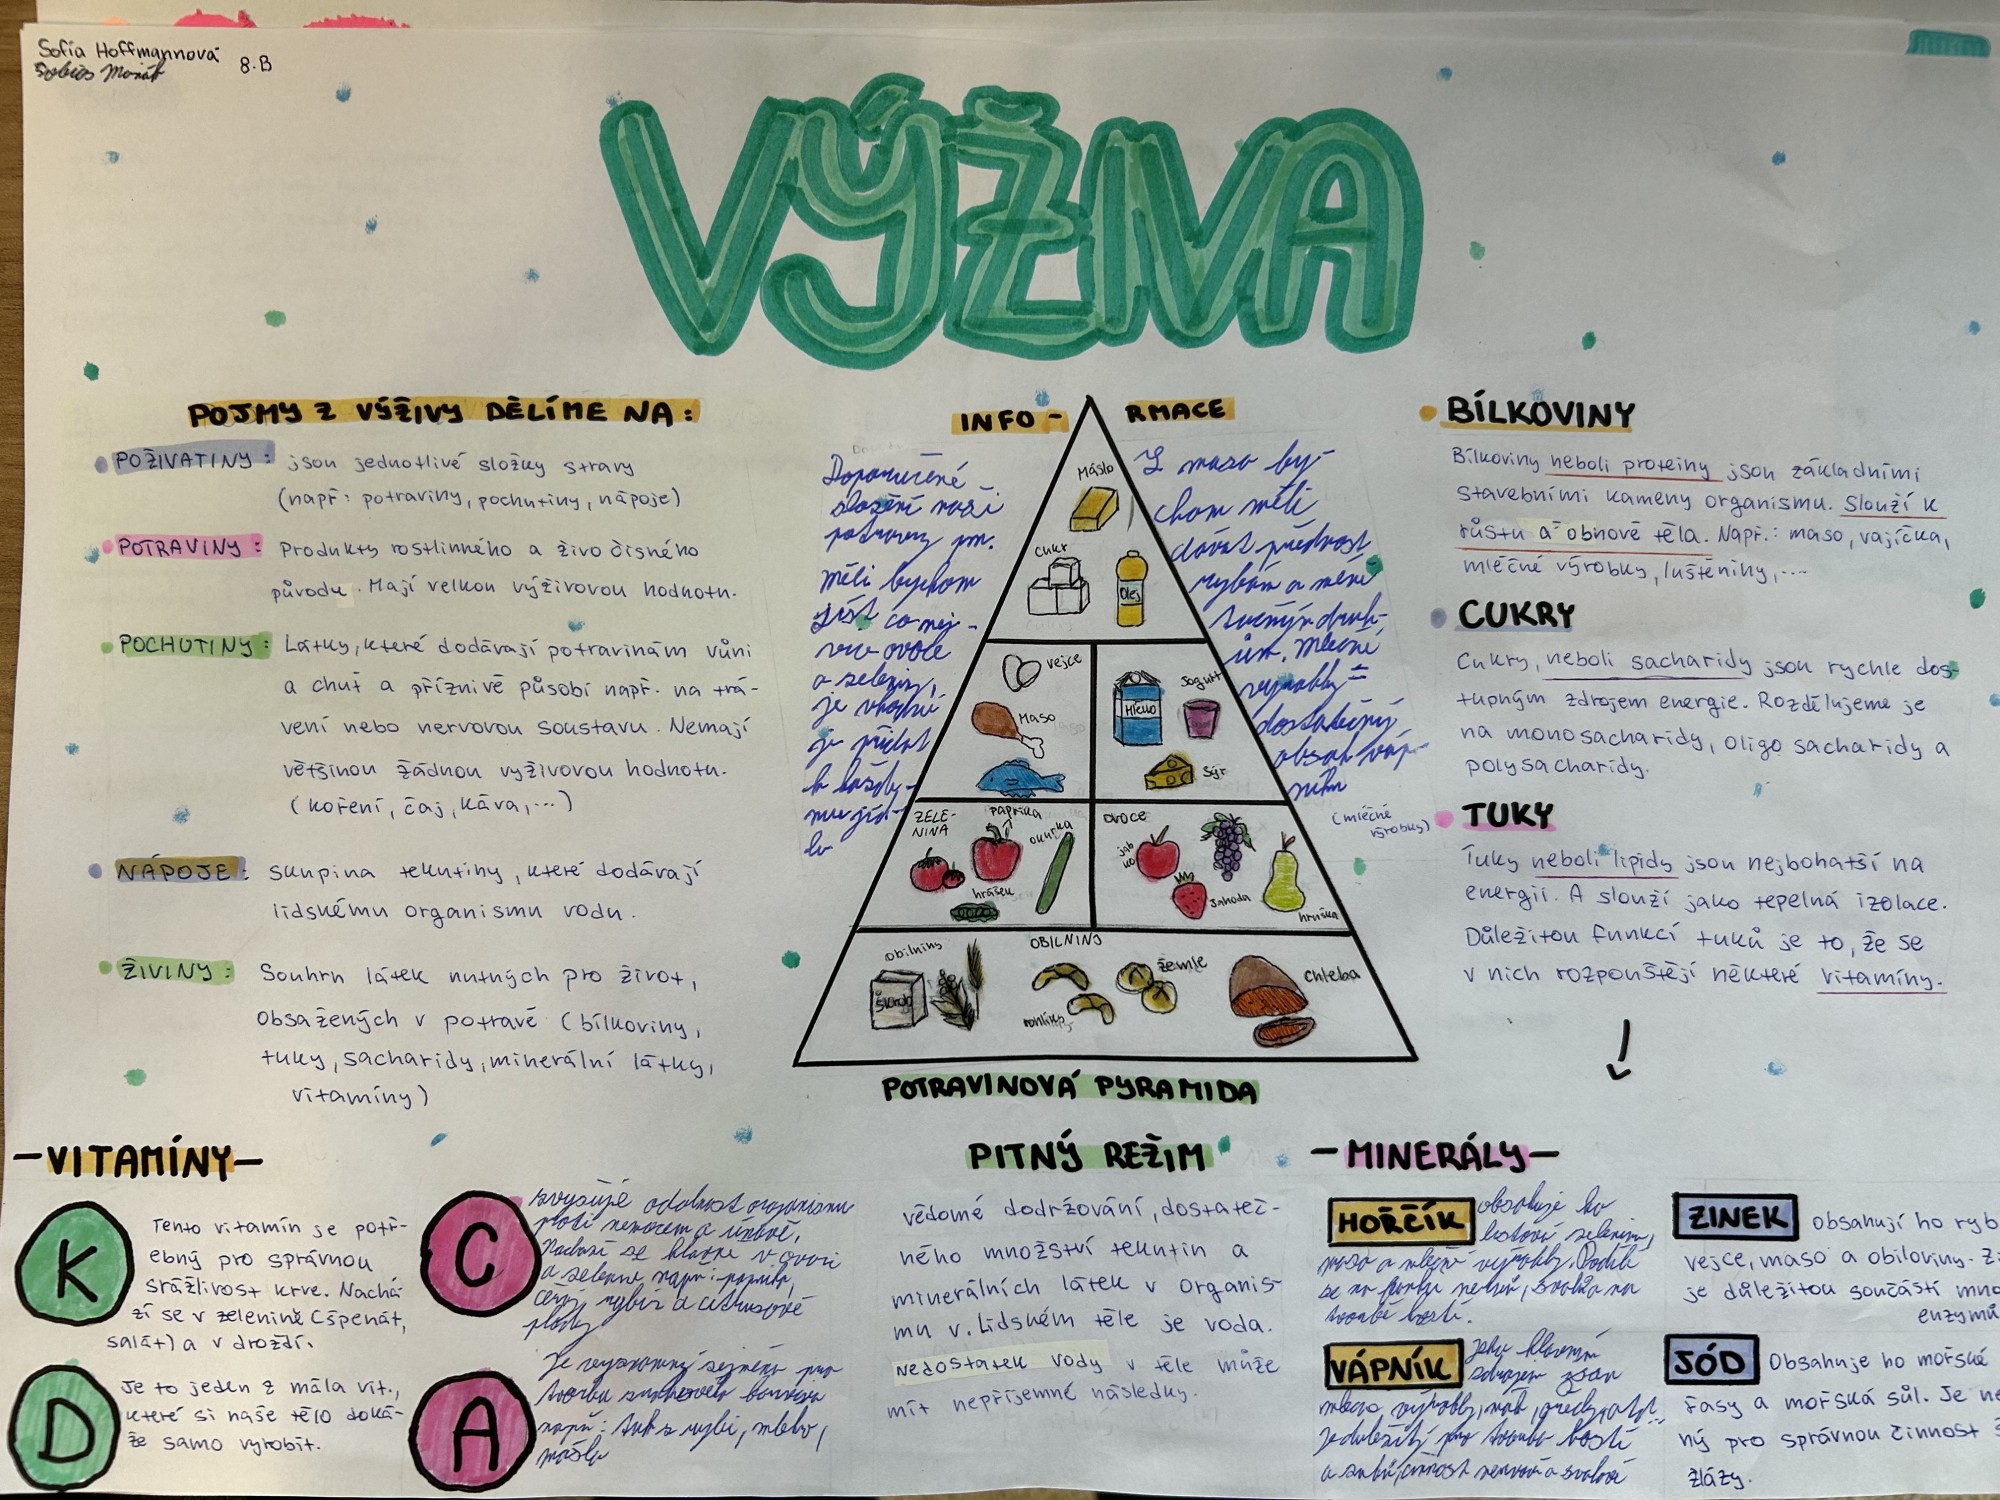 Sofia Hoffmannová
8.B
VÝŽIVA
POJMY Z VÝŽIVY DĚLÍME NA:
POŽIVATINY: jsou jednotlivé složky stravy
(např: potraviny, pochutiny, nápoje)
POTRAVINY: Produkty rostlinného a živočisného
původu. Mají velkou výživovou hodnotu.
POCHUTINY: Látky, které dodávají potravinám vůni
a chuť a příznivě působí např. na trá-
vení nebo nervovou soustavu. Nemají
většinou žádnou vyživovou hodnotu.
(koření, čaj, káva,...)
NÁPOJE: skupina tekutiny, které dodávají
lidskému organismu vodu.
ŽIVINY: Souhrn látek nutných pro život,
obsažených v potravě (bílkoviny,
tuky, sacharidy, minerální látky,
vitamíny)
INFO-
Doporučené
složení naší
potraviny
měli bychom
jíst co nej-
více ovoce
a zeleniny,
je vhodné
je přidat
k každé-
mu jíd-
lu
RMACE
Z masa by-
chom měli
dávat přednost
rybám a méně
tučným druh-
ům, mléčné
výrobky =
dostatečný
obsah váp-
níku
(mléčné
výrobky)
Máslo
cukr
Olej
vejce
Maso
Mléko
Jogurt
Sýr
ZELE-
NINA
paprika
okurka
hrášek
OVOCE
jab
ko
Jahoda
hruška
obilniny
OBILNINY
žemle
rohlíky
chleba
POTRAVINOVÁ PYRAMIDA
BÍLKOVINY
Bílkoviny neboli proteiny jsou základními
stavebními kameny organismu. Slouží k
růstu a obnově těla. Např.: maso, vajíčka,
mléčné výrobky, luštěniny,...
CUKRY
Cukry, neboli sacharidy jsou rychle dos-
tupným zdrojem energie. Rozdělujeme je
na monosacharidy, oligosacharidy a
polysacharidy.
TUKY
Tuky neboli lipidy jsou nejbohatší na
energii. A slouží jako tepelná izolace.
Důležitou funkcí tuků je to, že se
v nich rozpouštějí některé vitamíny.
-VITAMÍNY-
K
Tento vitamín je potř-
ebný pro správnou
srážlivost krve. Nachá
zí se v zelenině (špenát,
salát) a v droždí.
D
Je to jeden z mála vit.,
které si naše tělo doká-
že samo vyrobit.
C
zvyšuje odolnost organismu
proti nemocem a únavě,
Nachází se hlavně v ovoci
a zelenině, např: paprika,
černý rybíz a citrusové
plody
A
Je významný zejména pro
tvorbu
např: tuk z rybí, mléko,
máslo
PITNÝ REŽIM
vědomé dodržování, dostateč-
ného množství tekutin a
minerálních látek v organis-
mu v. Lidském těle je voda.
nedostatek vody v těle může
mít nepříjemné následky.
-MINERÁLY-
HOŘČÍK
obsahuje ho
listová zelenina,
maso a mléčné výrobky. Podílí
se na
tvorbě kostí.
ZINEK
Obsahují ho ryb
vejce, maso a obiloviny. Zi
je důležitou součástí mno
enzymů
VÁPNÍK
jeho hlavním
zdrojem jsou
mléčné výrobky, mák, ořechy,
Je důležitý pro tvorbu kostí
a zubů, činnost nervová a svalové
JÓD
Obsahuje ho mořské
řasy a mořská sůl. Je ne
ný pro správnou činnost š
žlázy.